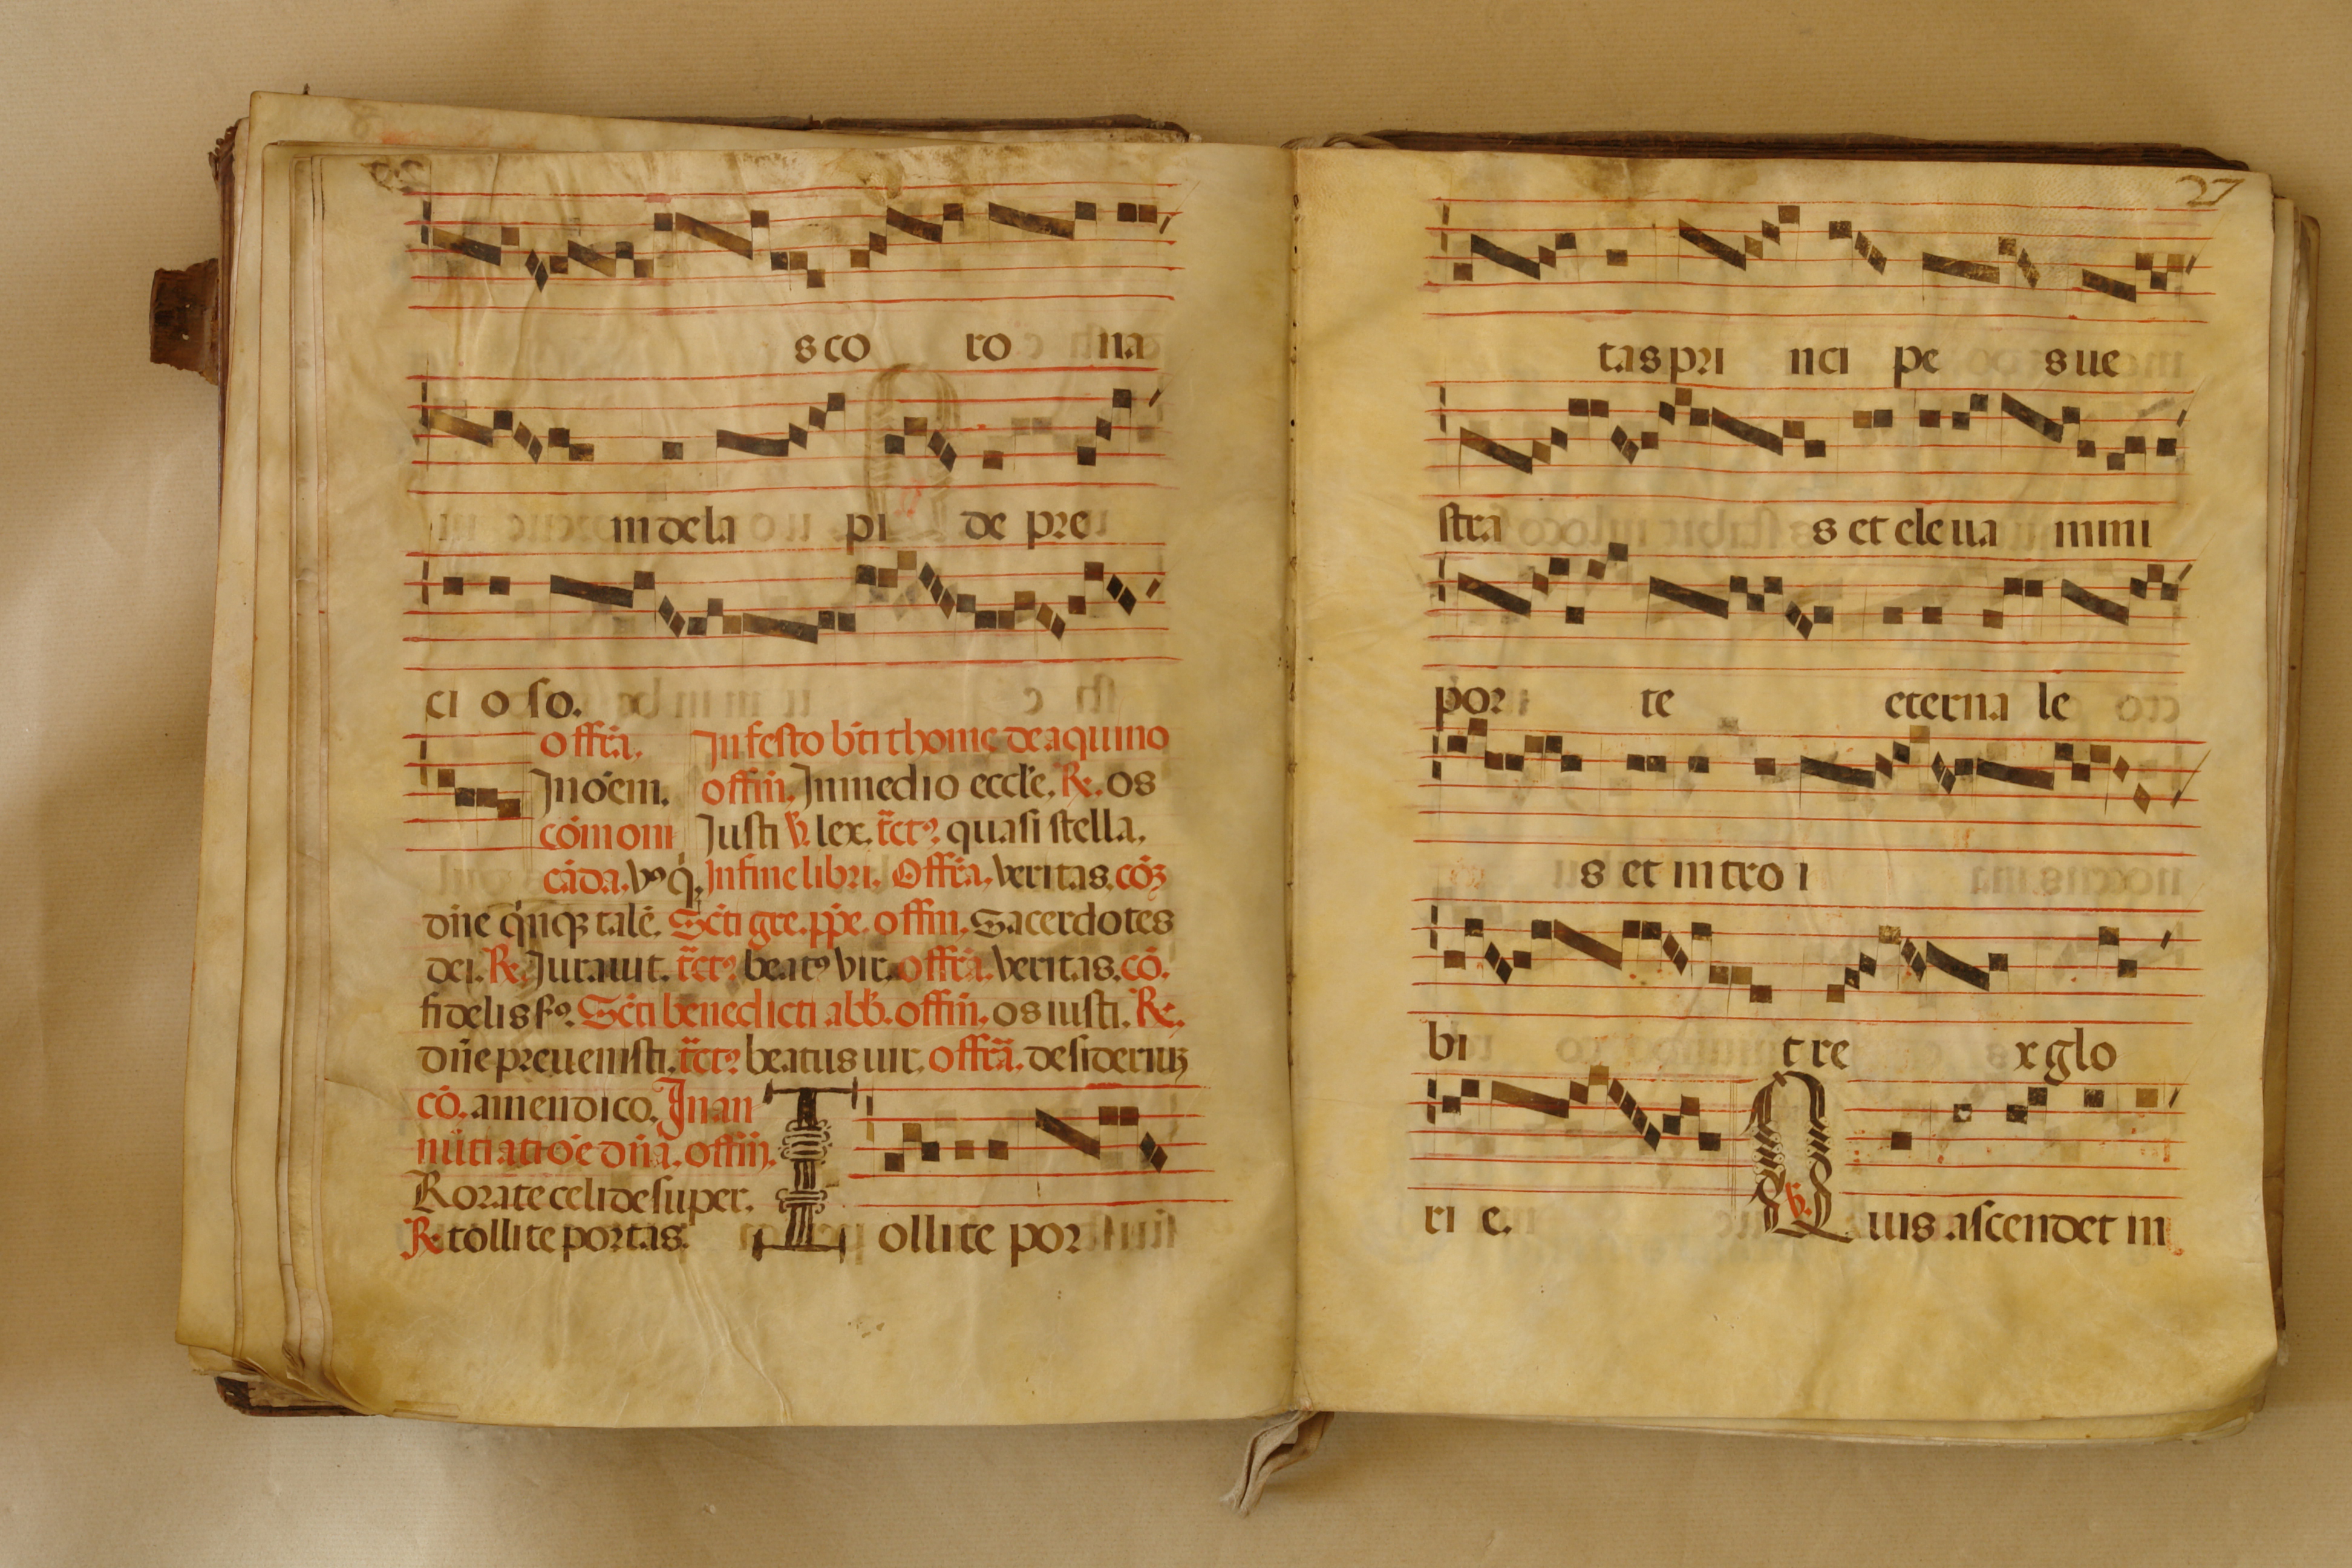 s co ro na
in de la pi de pre
ci o so.
offr̃a. In festo bt̃i thome de aquino
In oẽm. offm̃. In medio eccl'e. R. os
cõmoni Justi V. lex. tr̃ct9 quasi stella.
cãda. In fine libri. Offr̃a. veritas. cõ
dñe talẽ. Sc̃ti gre. pp̃e. offm̃. Sacerdotes
dei. R. Jurauit. tr̃ct9 beat9 vir. offr̃a. veritas. cõ.
fidelis s9. Sc̃ti benedicti abb̃. offm̃. os iusti. R.
dñe preuenisti. tr̃ct9 beatus uir. offr̃a. desideriuʒ
cõ. amen dico. In an
nũtiatiõe dñi. offm̃.
Rorate celi desuper.
R. tollite portas.
Tollite por
27
tas pri nci pe s ue
stra s et ele ua mini
por te eterna le
s et intro i
bi t re x glo
ri e. V. Quis ascendet in